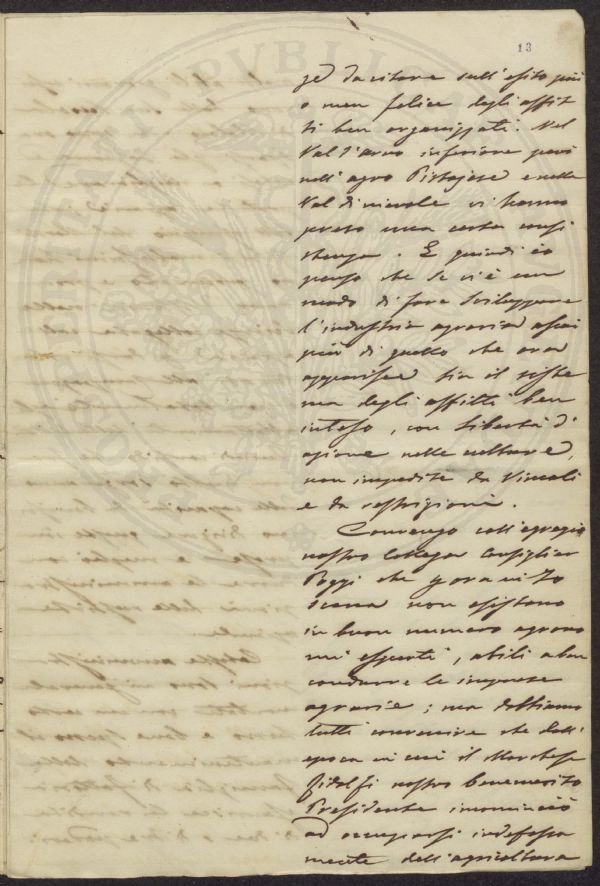 13
ge da citare sull'esito più
o men felice degli affit
ti ben organizzati. Nel
Val d'Arno inferiore però
nell'agro Pistojese e nella
Val di nievole vi hanno
preso una certa consi
stenza. E quindi io
penso che se vi è un
modo di fare sviluppare
l'industria agraria assai
più di quello che ora
apparisce sia il siste
ma degli affitti ben
inteso, con libertà d'
azione nelle culture,
non impedite da vincoli
e da restrizioni.
Convengo coll'egregio
nostro Collega Consiglier
Poggi che per ora in To
scana non esistano
in buon numero agrono
mi esperti, abili a ben
condurre le imprese
agrarie; ma dobbiamo
tutti convenire che dall'
epoca in cui il Marchese
Ridolfi nostro benemerito
Presidente incominciò
ad occuparsi indefessa
mente dell'agricoltura